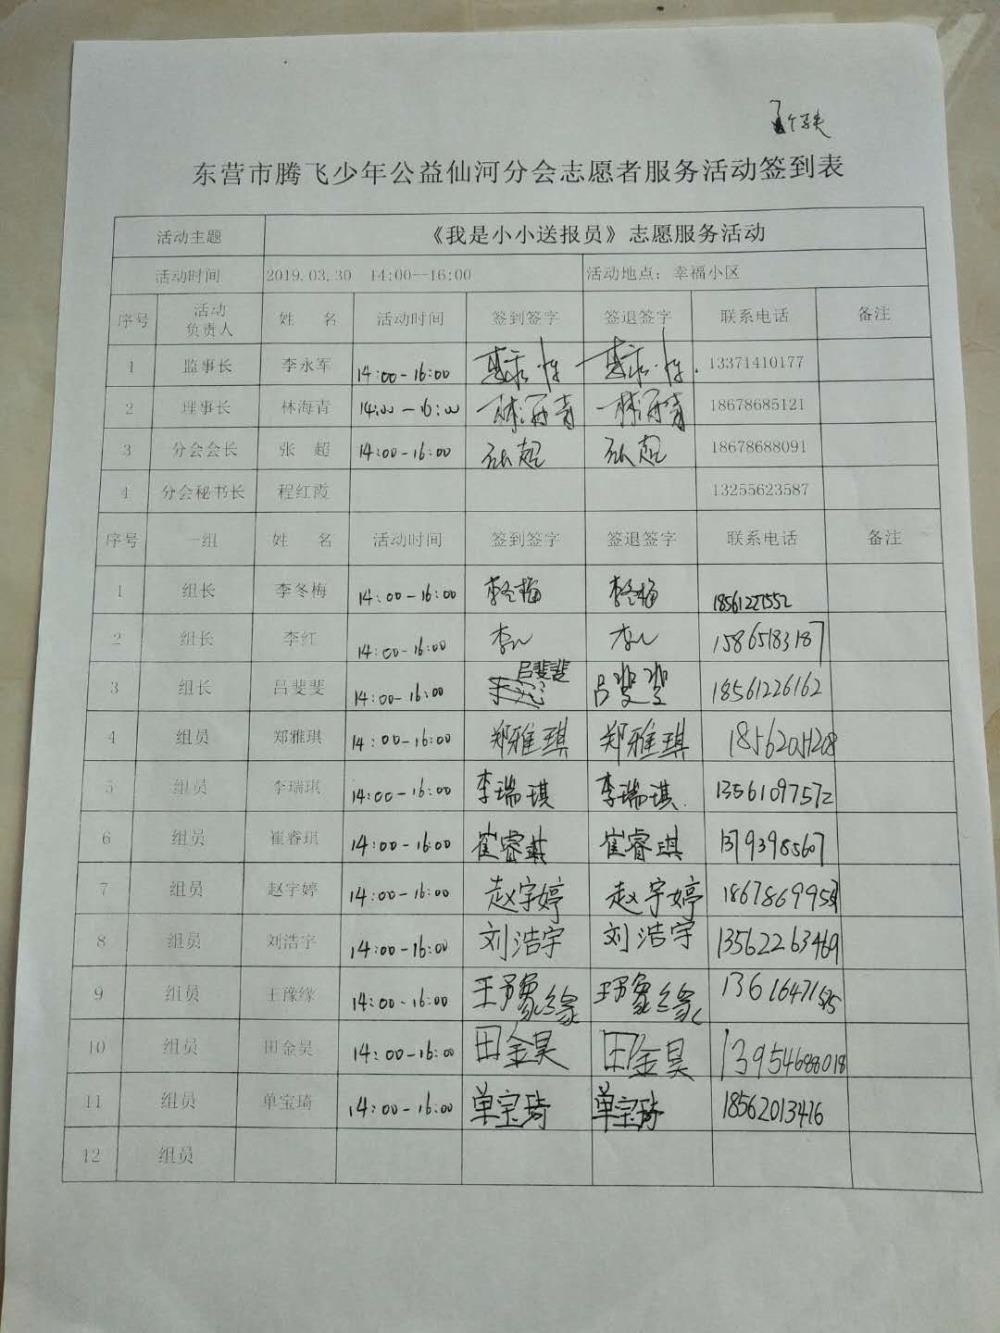 东营市腾飞少年公益仙河分会志愿者服务活动签到表
活动主题 《我是小小送报员》志愿服务活动
活动时间 2019.03.30 14:00--16:00 活动地点：幸福小区
序号 活动负责人 姓 名 活动时间 签到签字 签退签字 联系电话 备注
1 监事长 李永军 14:00-16:00 13371410177
2 理事长 林海青 14:00-16:00 林海青 林海青 18678685121
3 分会会长 张 超 14:00-16:00 张超 张超 18678688091
4 分会秘书长 程红霞 13255623587
序号 一组 姓 名 活动时间 签到签字 签退签字 联系电话 备注
1 组长 李冬梅 14:00-16:00 李冬梅 李冬梅 18561221552
2 组长 李红 14:00-16:00 李红 李红 15865183187
3 组长 吕斐斐 14:00-16:00 吕斐斐 吕斐斐 18561226162
4 组员 郑雅琪 14:00-16:00 郑雅琪 郑雅琪 18562051208
5 组员 李瑞琪 14:00-16:00 李瑞琪 李瑞琪 13561097572
6 组员 崔睿琪 14:00-16:00 崔睿琪 崔睿琪
7 组员 赵宇婷 14:00-16:00 赵宇婷 赵宇婷
8 组员 刘浩宇 14:00-16:00 刘浩宇 刘浩宇 13562263469
9 组员 王豫缘 14:00-16:00 王豫缘 王豫缘
10 组员 田金昊 14:00-16:00 田金昊 田金昊 13954688018
11 组员 单宝琦 14:00-16:00 单宝琦 单宝琦 18562013416
12 组员